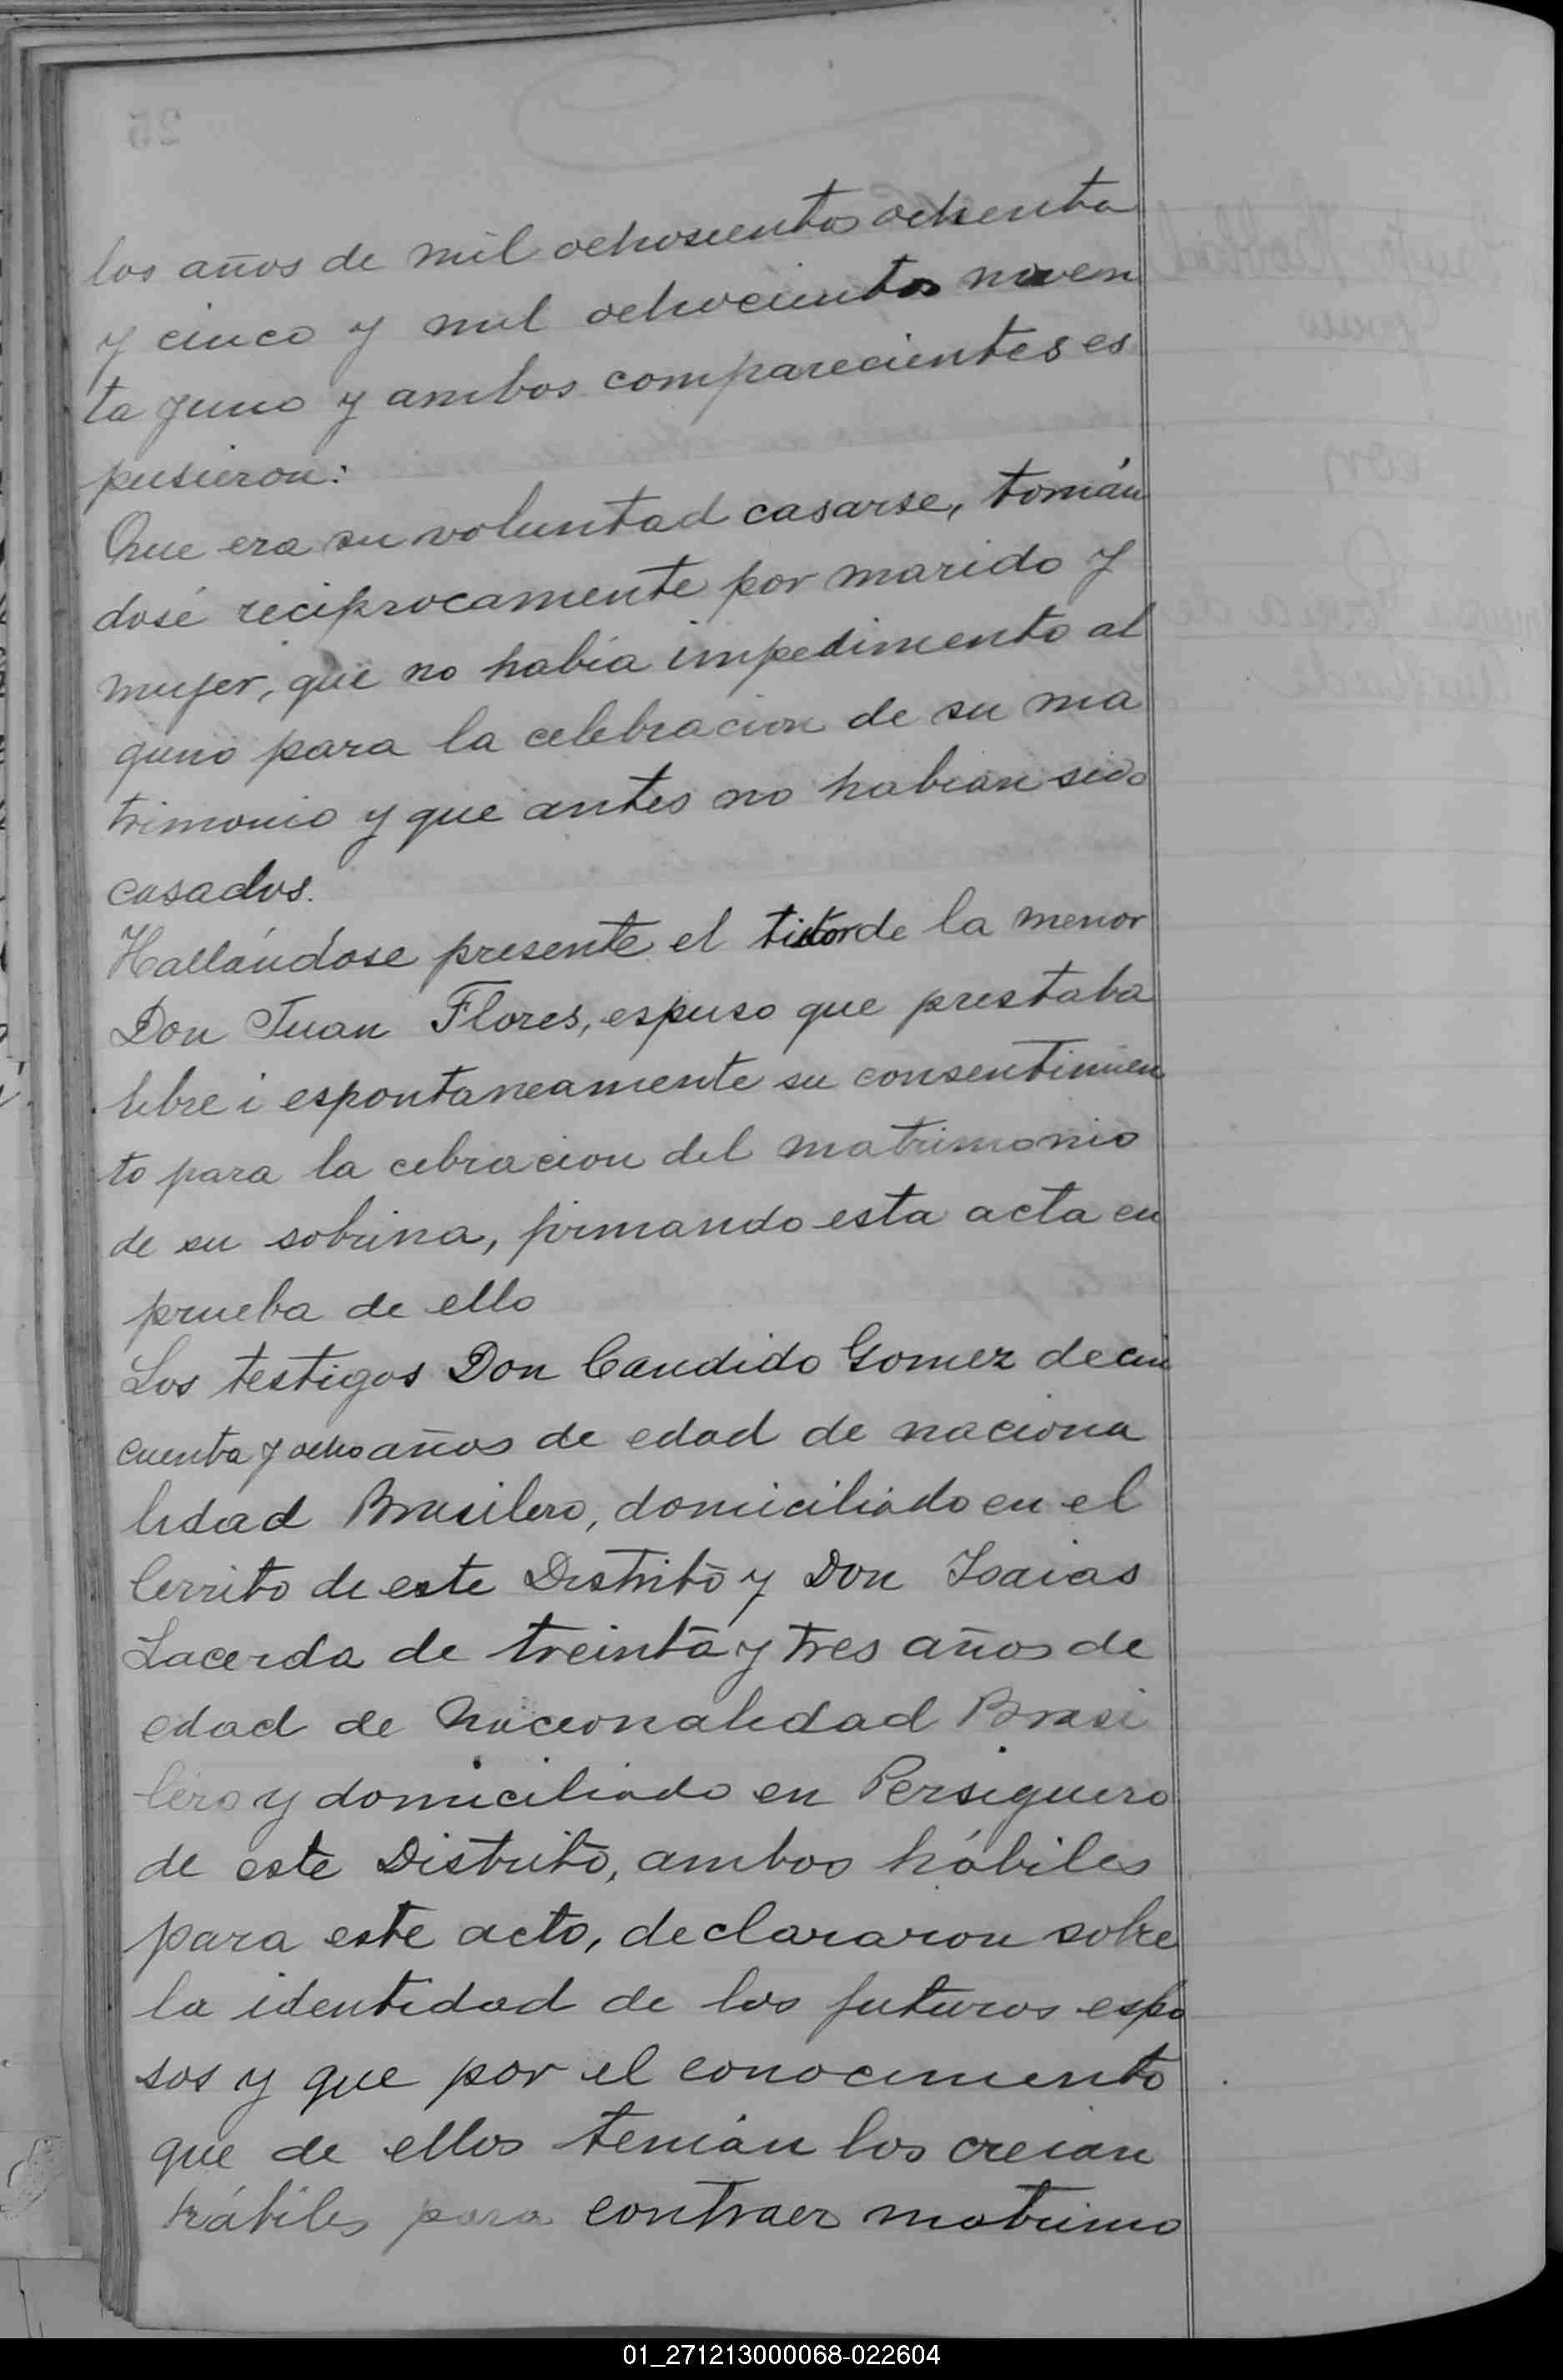 los años de mil ochosientos ochenta
y cinco y mil ochocientos noven
ta y uno y ambos comparecientes es
pusieron:
Que era su voluntad casarse, tomán
dosé reciprocamente por marido y
mujer, que no había impedimento al
guno para la celebracion de su ma
trimonio y que antes no habian sido
casados.
Hallándose presente el tutor de la menor
Don Juan Flores, espuso que prestaba
libre i espontaneamente su consentimien
to para la cebracion del matrimonio
de su sobrina, firmando esta acta en
prueba de ello
Los testigos Don Candido Gomez de cin
cuenta y ocho años de edad de naciona
lidad Brasilero, domiciliado en el
Cerrito de este Distrito y Don Isaias
Lacerda de treinta y tres años de
edad de nacionalidad Brasi
lero y domiciliado en Persiguero
de este Distrito, ambos hábiles
para este acto, declararon sobre
la identidad de los futuros espo
sos y que por el conocimiento
que de ellos tenían los creian
hábiles para contraer matrimo
01_271213000068-022604